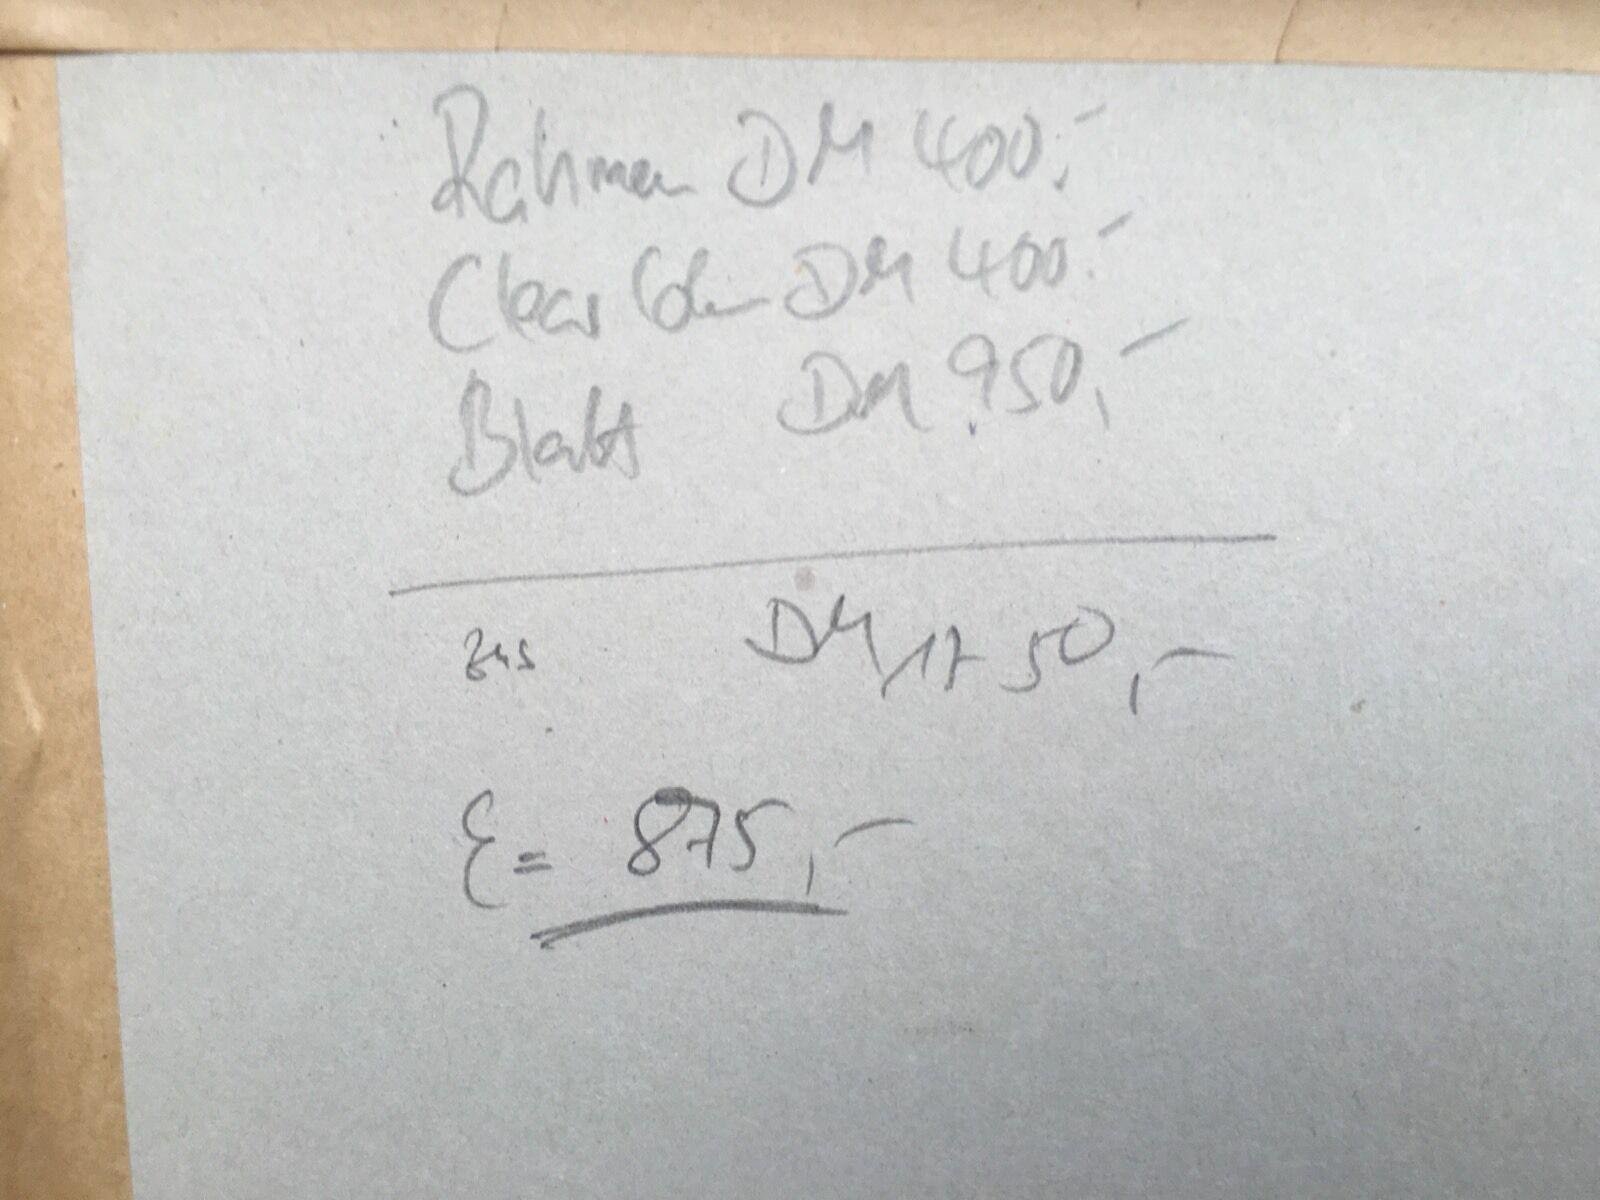 Rahmen DM 400,-
Clear Color DM 400.-
Blatt DM 950,-
zus DM 1750,-
€= 875,-